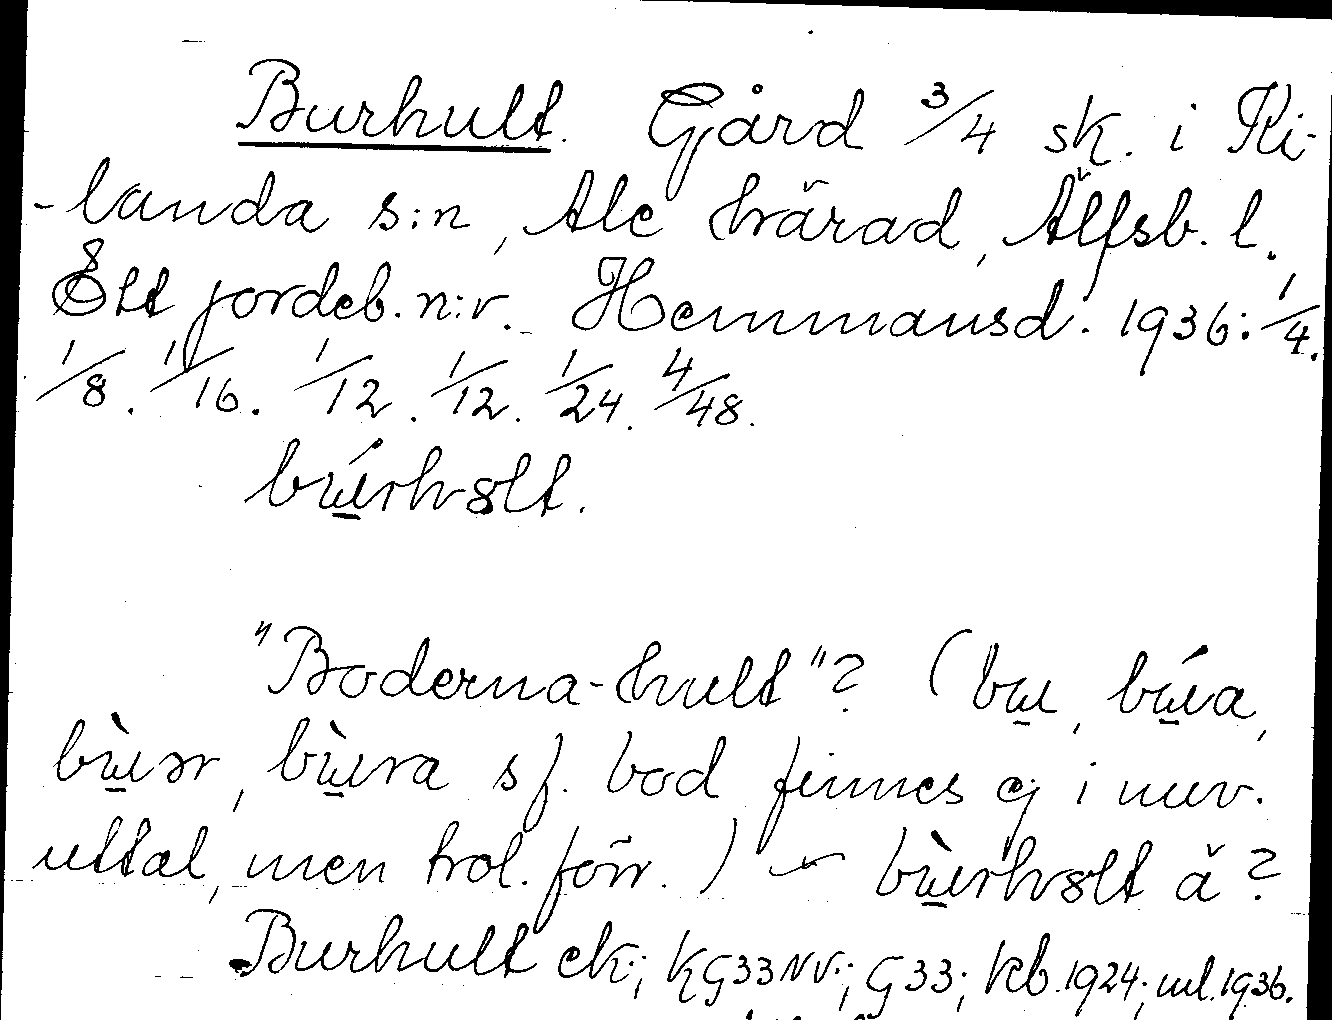 Burhult. Gård 3/4 sk. i Ki-
-landa s:n, Ale härad, Älfsb. l.
Ett jordeb. n:r. Hemmansd. 1936: 1/4.
1/8. 1/16. 1/12. 1/12. 1/24. 4/48.
bɯ́rhɷlt.
"Boderna-hult"? (bɯ, bɯ́a,
bɯ̀ər, bɯ̀ra sf. bod finnes ej i nuv.
uttal, men trol. förr.) – bɯ̀rhɷlt ä?
Burhult ek; KG33NV.; G33; kb. 1924; ml. 1936.